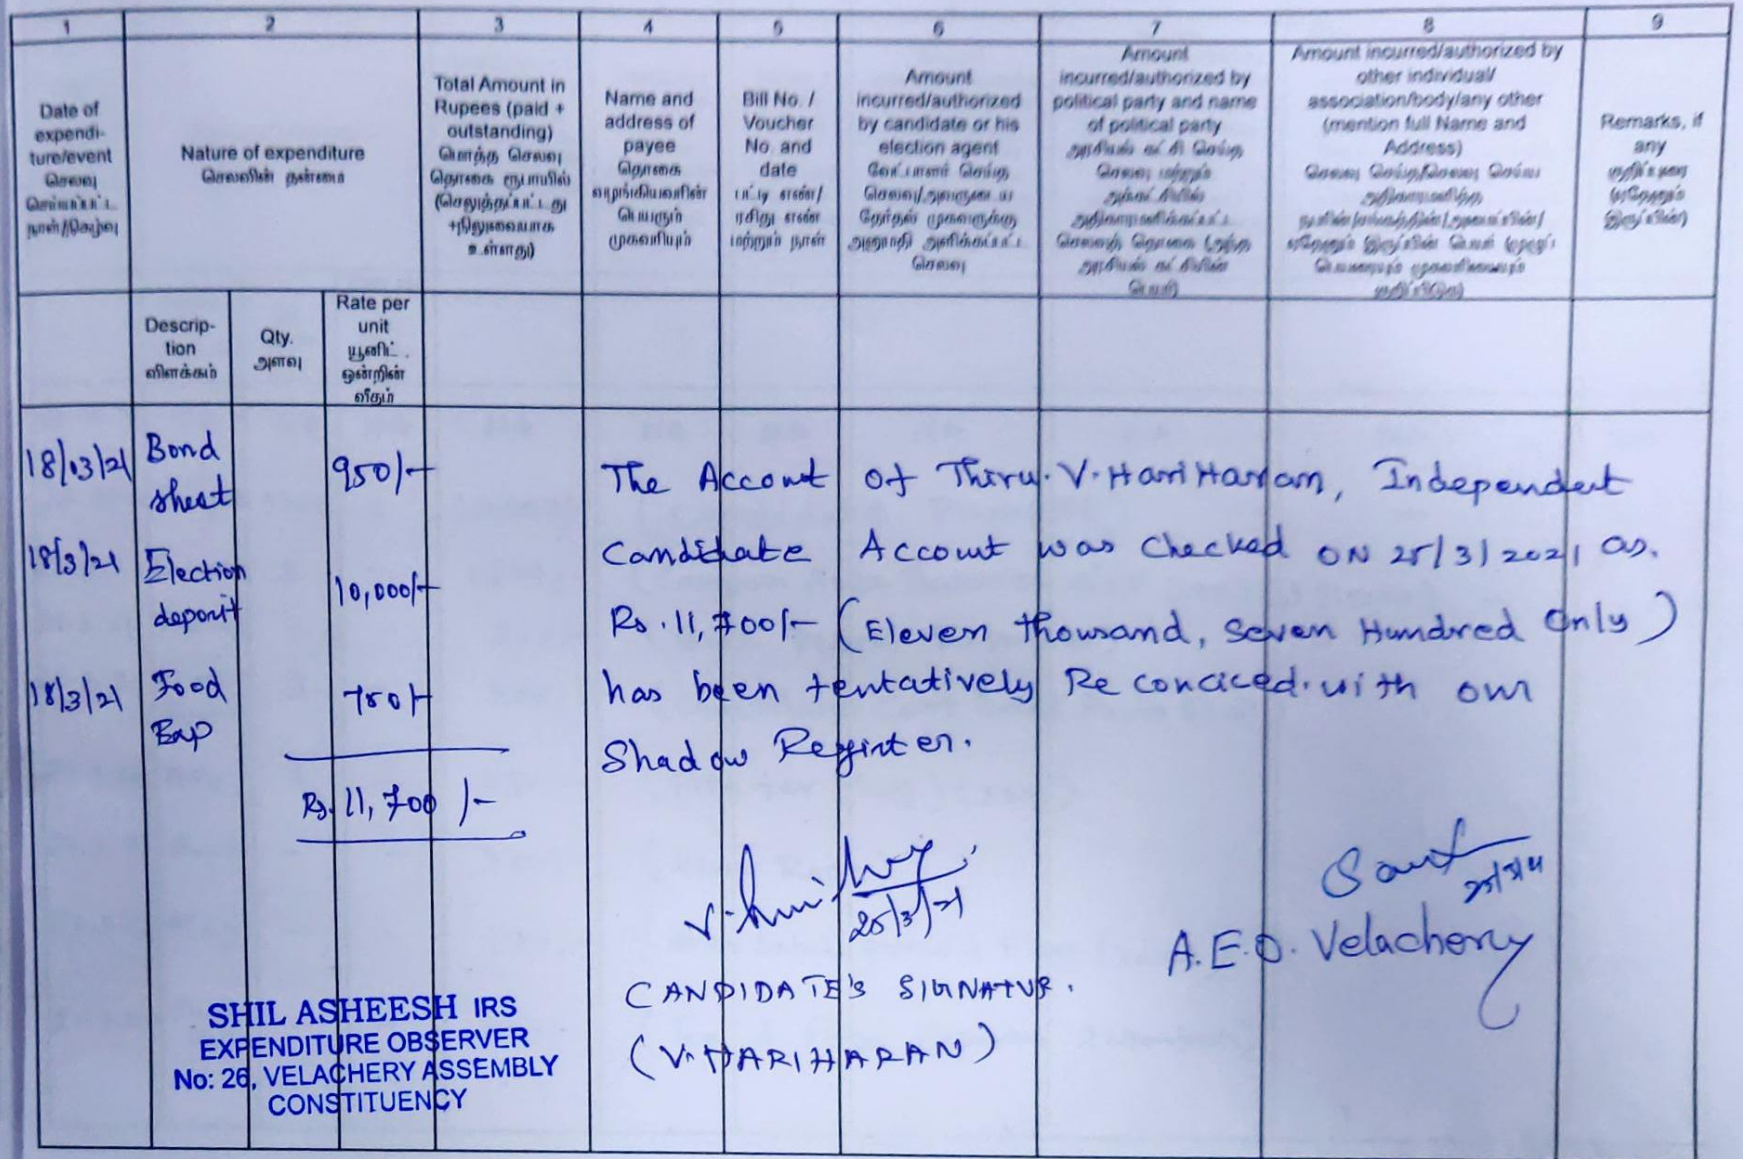 1 2 3 4 5 6 7 8 9
Date of
expendi-
ture/event
செலவு
செய்யப்பட்ட
நாள்/நிகழ்வு
Nature of expenditure
செலவின் தன்மை
Total Amount in
Rupees (paid +
outstanding)
மொத்த செலவு
தொகை ரூபாயில்
(செலுத்தப்பட்டது
+நிலுவையாக
உள்ளது)
Name and
address of
payee
தொகை
வழங்கியவரின்
பெயரும்
முகவரியும்
Bill No. /
Voucher
No. and
date
பட்டி எண்/
ரசிது எண்
மற்றும் நாள்
Amount
incurred/authorized
by candidate or his
election agent
வேட்பாளர் செய்த
செலவு/அவருடைய
தேர்தல் முகவருக்கு
அனுமதி அளிக்கப்பட்ட
செலவு
Amount
incurred/authorized by
political party and name
of political party
அரசியல் கட்சி செய்த
செலவு மற்றும்
அக்கட்சியின்
அதிகாரமளிக்கப்பட்ட
செலவுத் தொகை (அந்த
அரசியல் கட்சியின்
பெயர்)
Amount incurred/authorized by
other individual/
association/body/any other
(mention full Name and
Address)
Remarks, if
any
Descrip-
tion
விளக்கம்
Qty.
அளவு
Rate per
unit
யூனிட்
ஒன்றின்
வீதம்
18/03/21 Bond 950/-
sheet
18/3/21 Election 10,000/-
deposit
18/3/21 Food 750/-
Exp
Rs. 11,700/-
The Account of Thiru. V. Hari Haran, Independent
Candidate Account was checked ON 25/3/2021 as.
Rs. 11,700/- (Eleven thousand, Seven Hundred Only)
has been tentatively Re conciced. with our
Shadow Register.
25/3/21
CANDIDATE'S SIGNATUR.
(V. HARIHARAN)
A.E.O. Velachery
SHIL ASHEESH IRS
EXPENDITURE OBSERVER
No: 26, VELACHERY ASSEMBLY
CONSTITUENCY